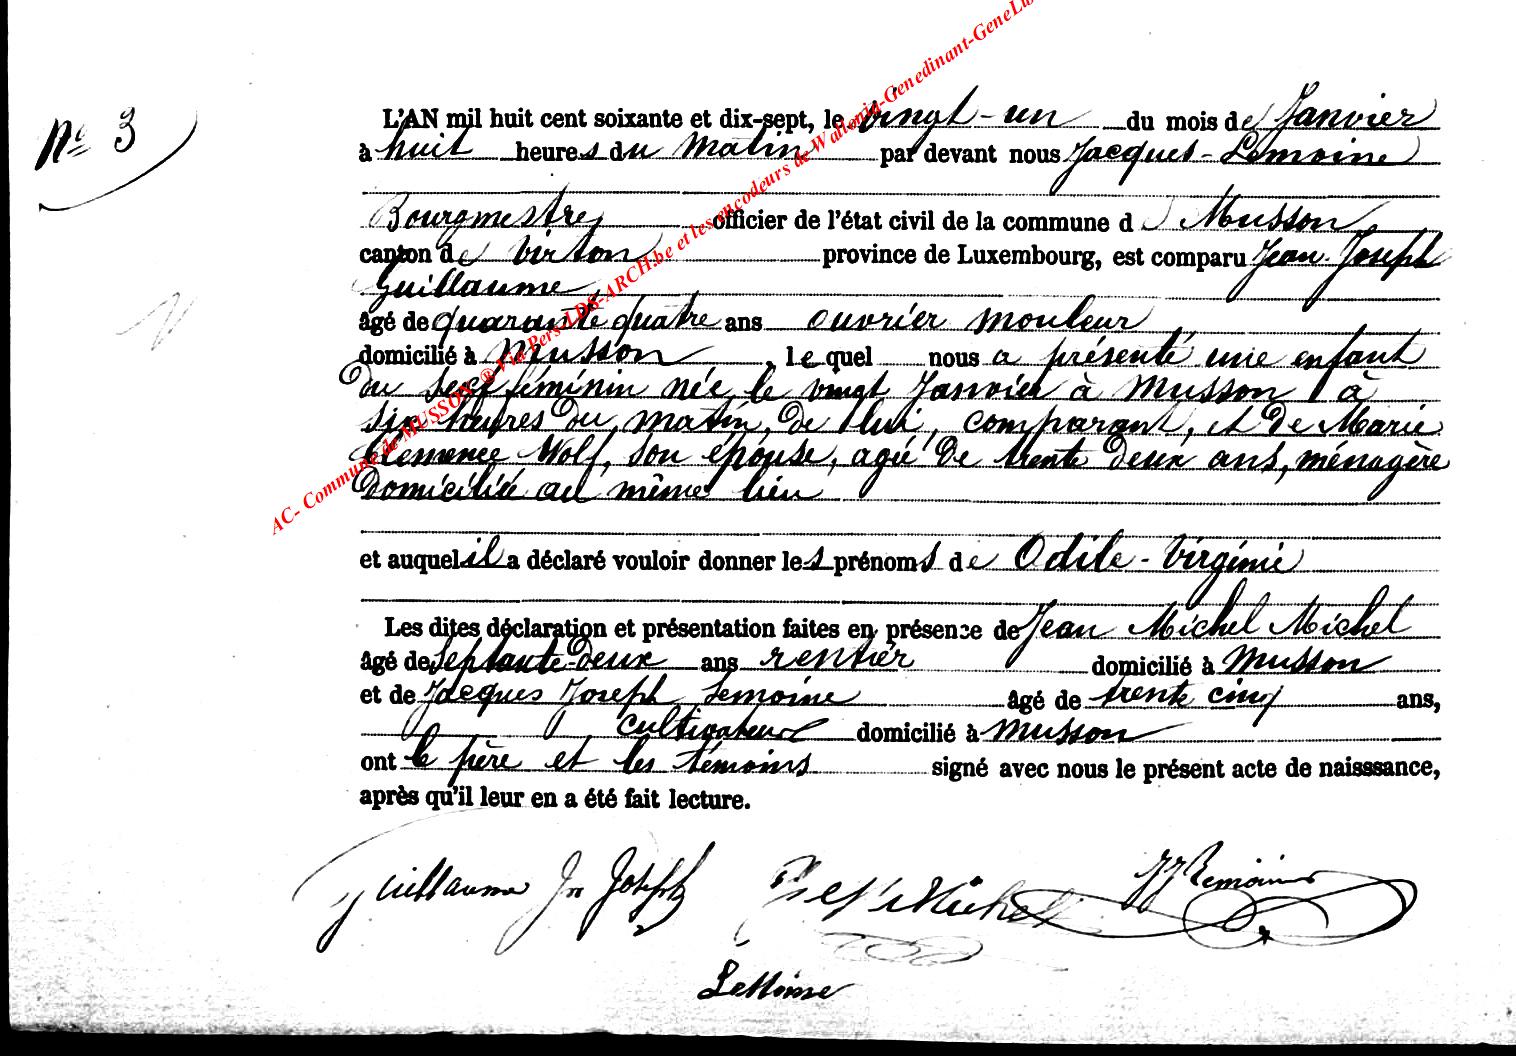 N° 3
L'AN mil huit cent soixante et dix-sept, le vingt-un du mois de Janvier
à huit heures du matin par devant nous Jacques-Lemoine
Bourgmestre officier de l'état civil de la commune d Musson
canton de Virton province de Luxembourg, est comparu Jean Joseph
Guillaume
âgé de quarante quatre ans ouvrier mouleur
domicilié à Musson, lequel nous a présenté une enfant
du sexe féminin née le vingt Janvier à Musson à
six heures du matin, de lui, comparant, et de Marie
Clemence Wolf, son épouse, agée de trente deux ans, ménagère
domiciliée au même lieu
et auquel il a déclaré vouloir donner les prénoms de Odile-Virginie
Les dites déclaration et présentation faites en présence de Jean Michel Michel
âgé de septante-deux ans rentier domicilié à Musson
et de Jacques Joseph Lemoine âgé de trente cinq ans,
cultivateur domicilié à Musson
ont le père et les témoins signé avec nous le présent acte de naisssance,
après qu'il leur en a été fait lecture.
Guillaume Jn Joseph Michel JJ Lemoine
Lemoine
AC- Commune de MUSSON ® Via Pers LDS-ARCH.be et les encodeurs de Wallonia-Genedinant-GeneLux